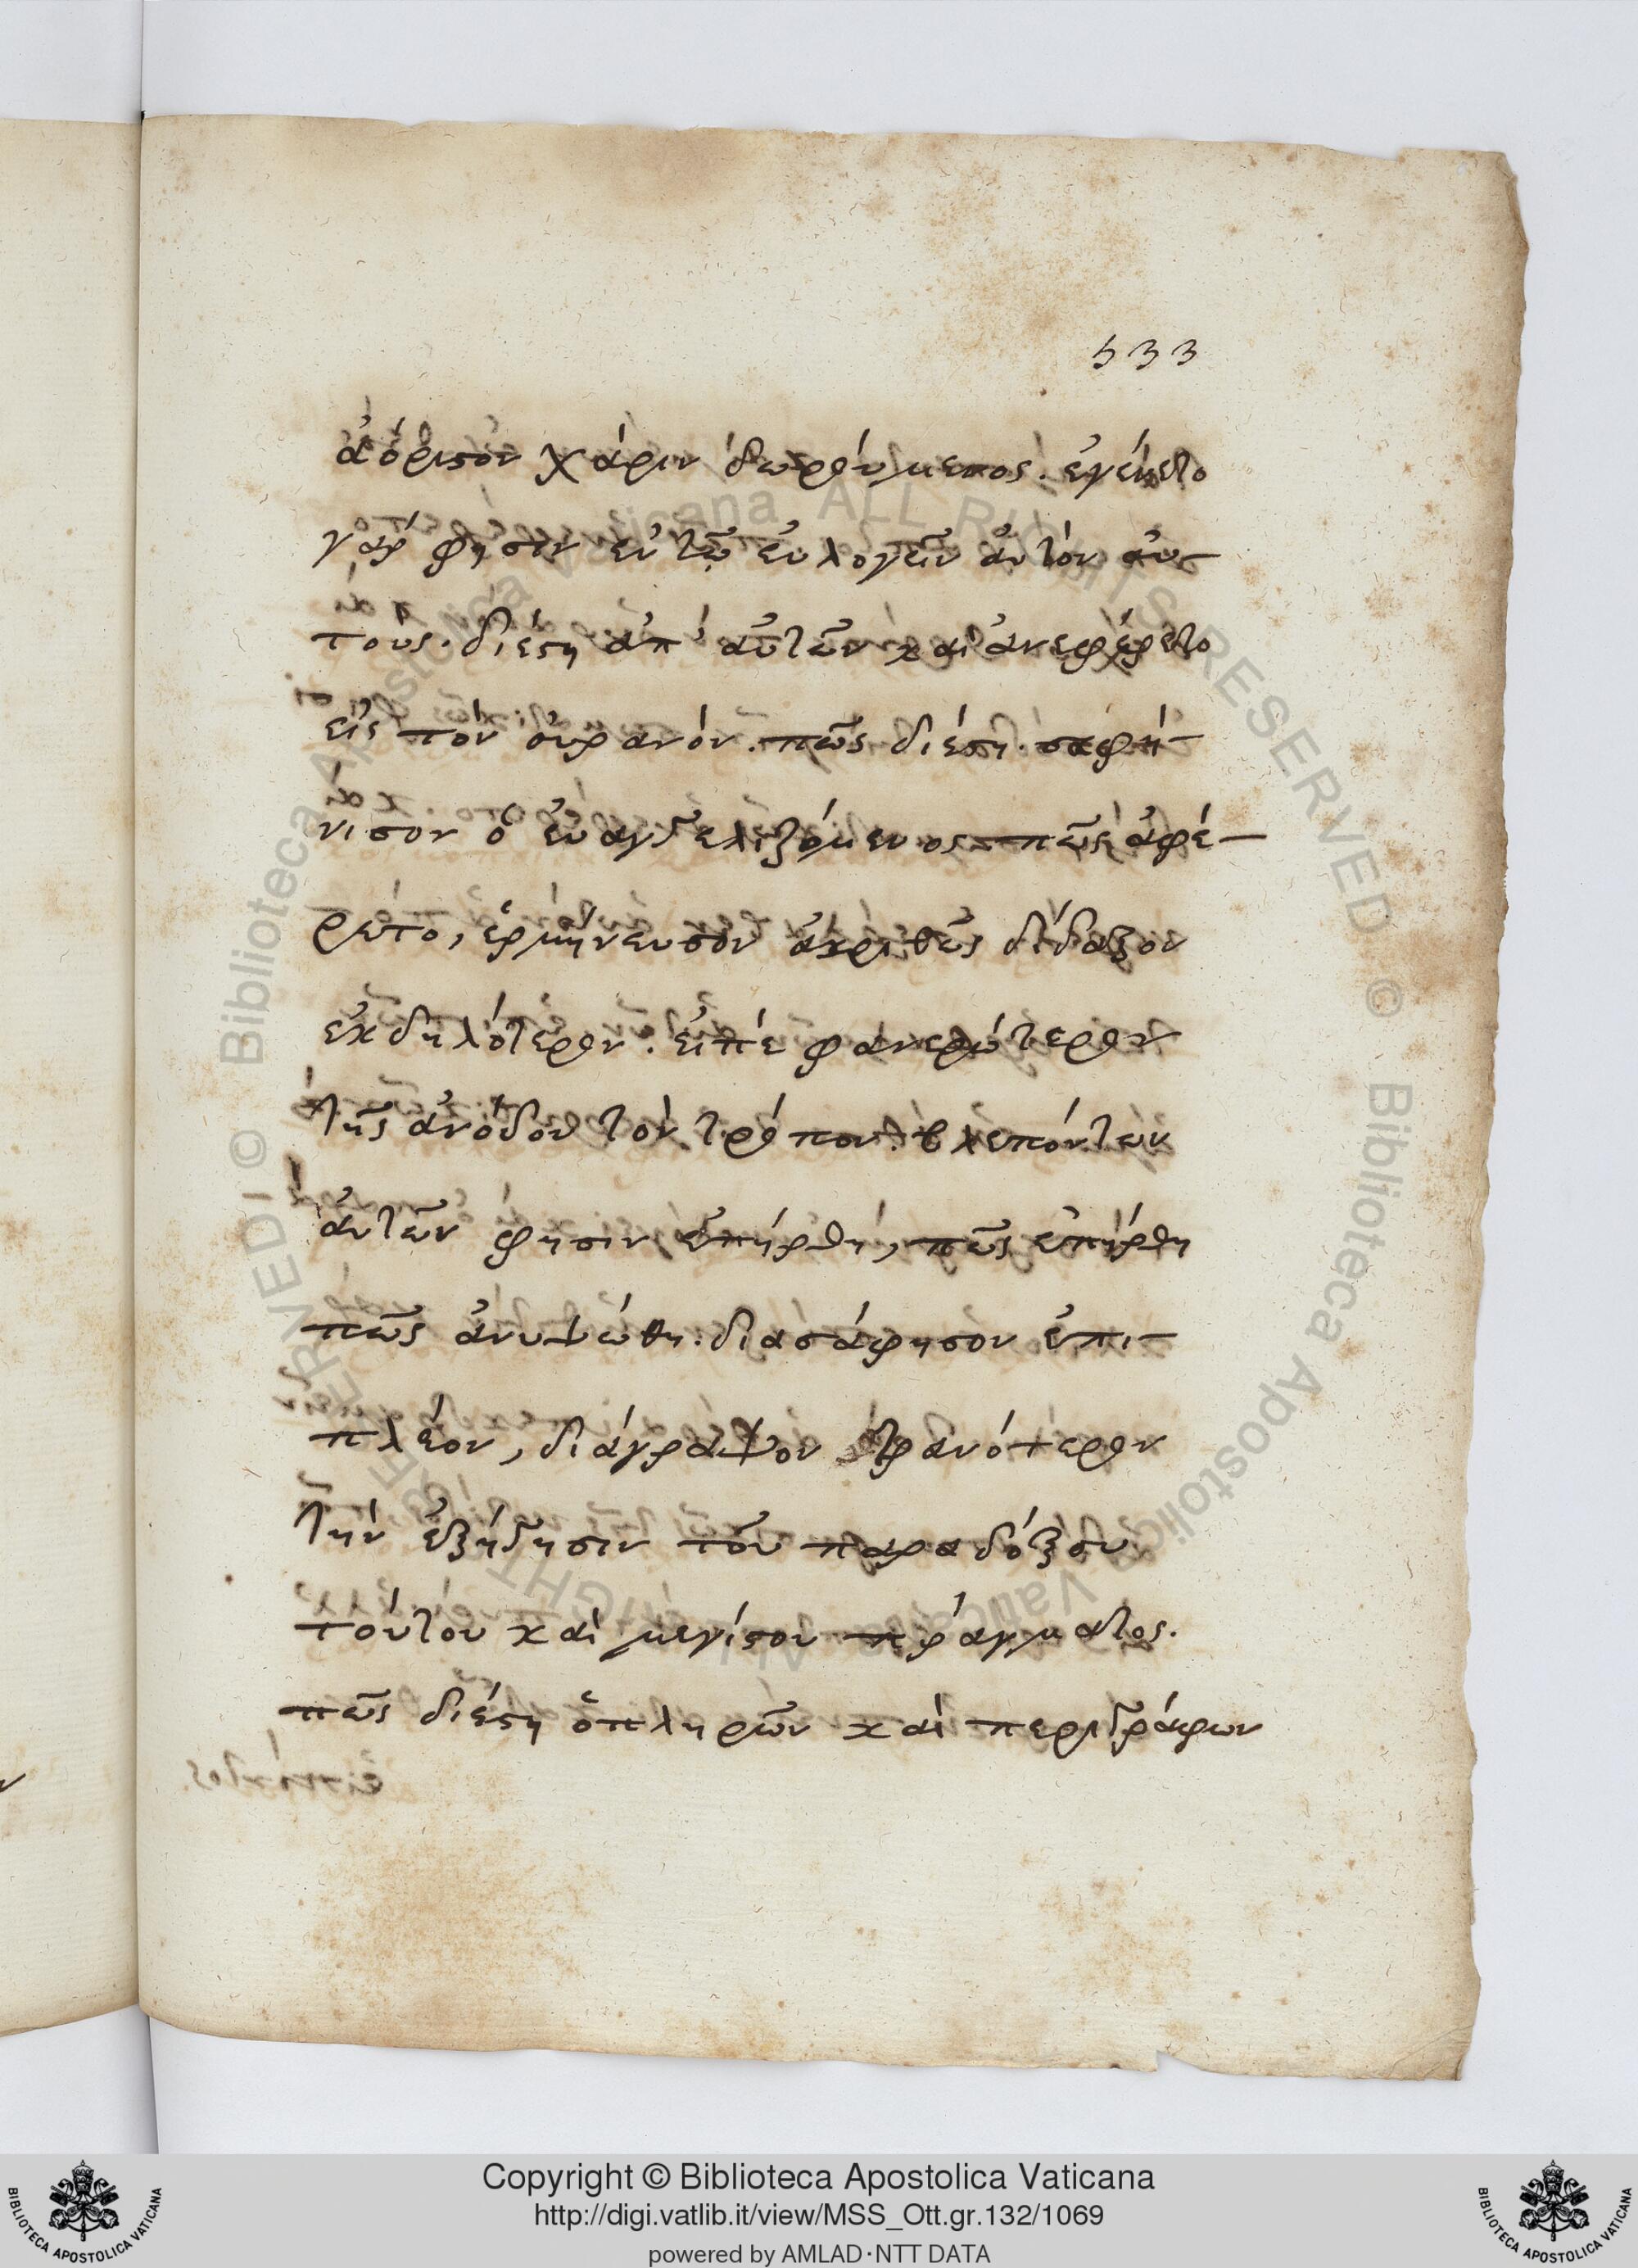 533
ἀόριστον χάριν δωρούμενος. ἐγένετο
γάρ φησιν ἐν τῷ εὐλογεῖν αὐτὸν αὐ-
τούς. διέστη ἀπ' αὐτῶν καὶ ἀνεφέρετο
εἰς τὸν οὐρανόν. πῶς διέστη. σαφή-
νισον ὁ εὐαγγελιζόμενος πῶς ἀφέ-
ρετο, ἑρμήνευσον ἀκριβῶς δίδαξον
ἐκδηλότερον. εἰπὲ φανερώτερον
τῆς ἀνόδου τὸν τρόπον. βλεπόντων
αὐτῶν φησιν ἐπήρθη, πῶς ἐπήρθη
πῶς ἀνυψώθη. διασάφησον ἐπι-
πλέον, διάγραψον τρανότερον
τὴν ἐξήγησιν τοῦ παραδόξου
τούτου καὶ μεγίστου πράγματος.
πῶς διέστη ὁ πληρῶν καὶ περιγράφων
Copyright © Biblioteca Apostolica Vaticana
http://digi.vatlib.it/view/MSS_Ott.gr.132/1069
powered by AMLAD·NTT DATA
BIBLIOTECA APOSTOLICA VATICANA
BIBLIOTECA APOSTOLICA VATICANA